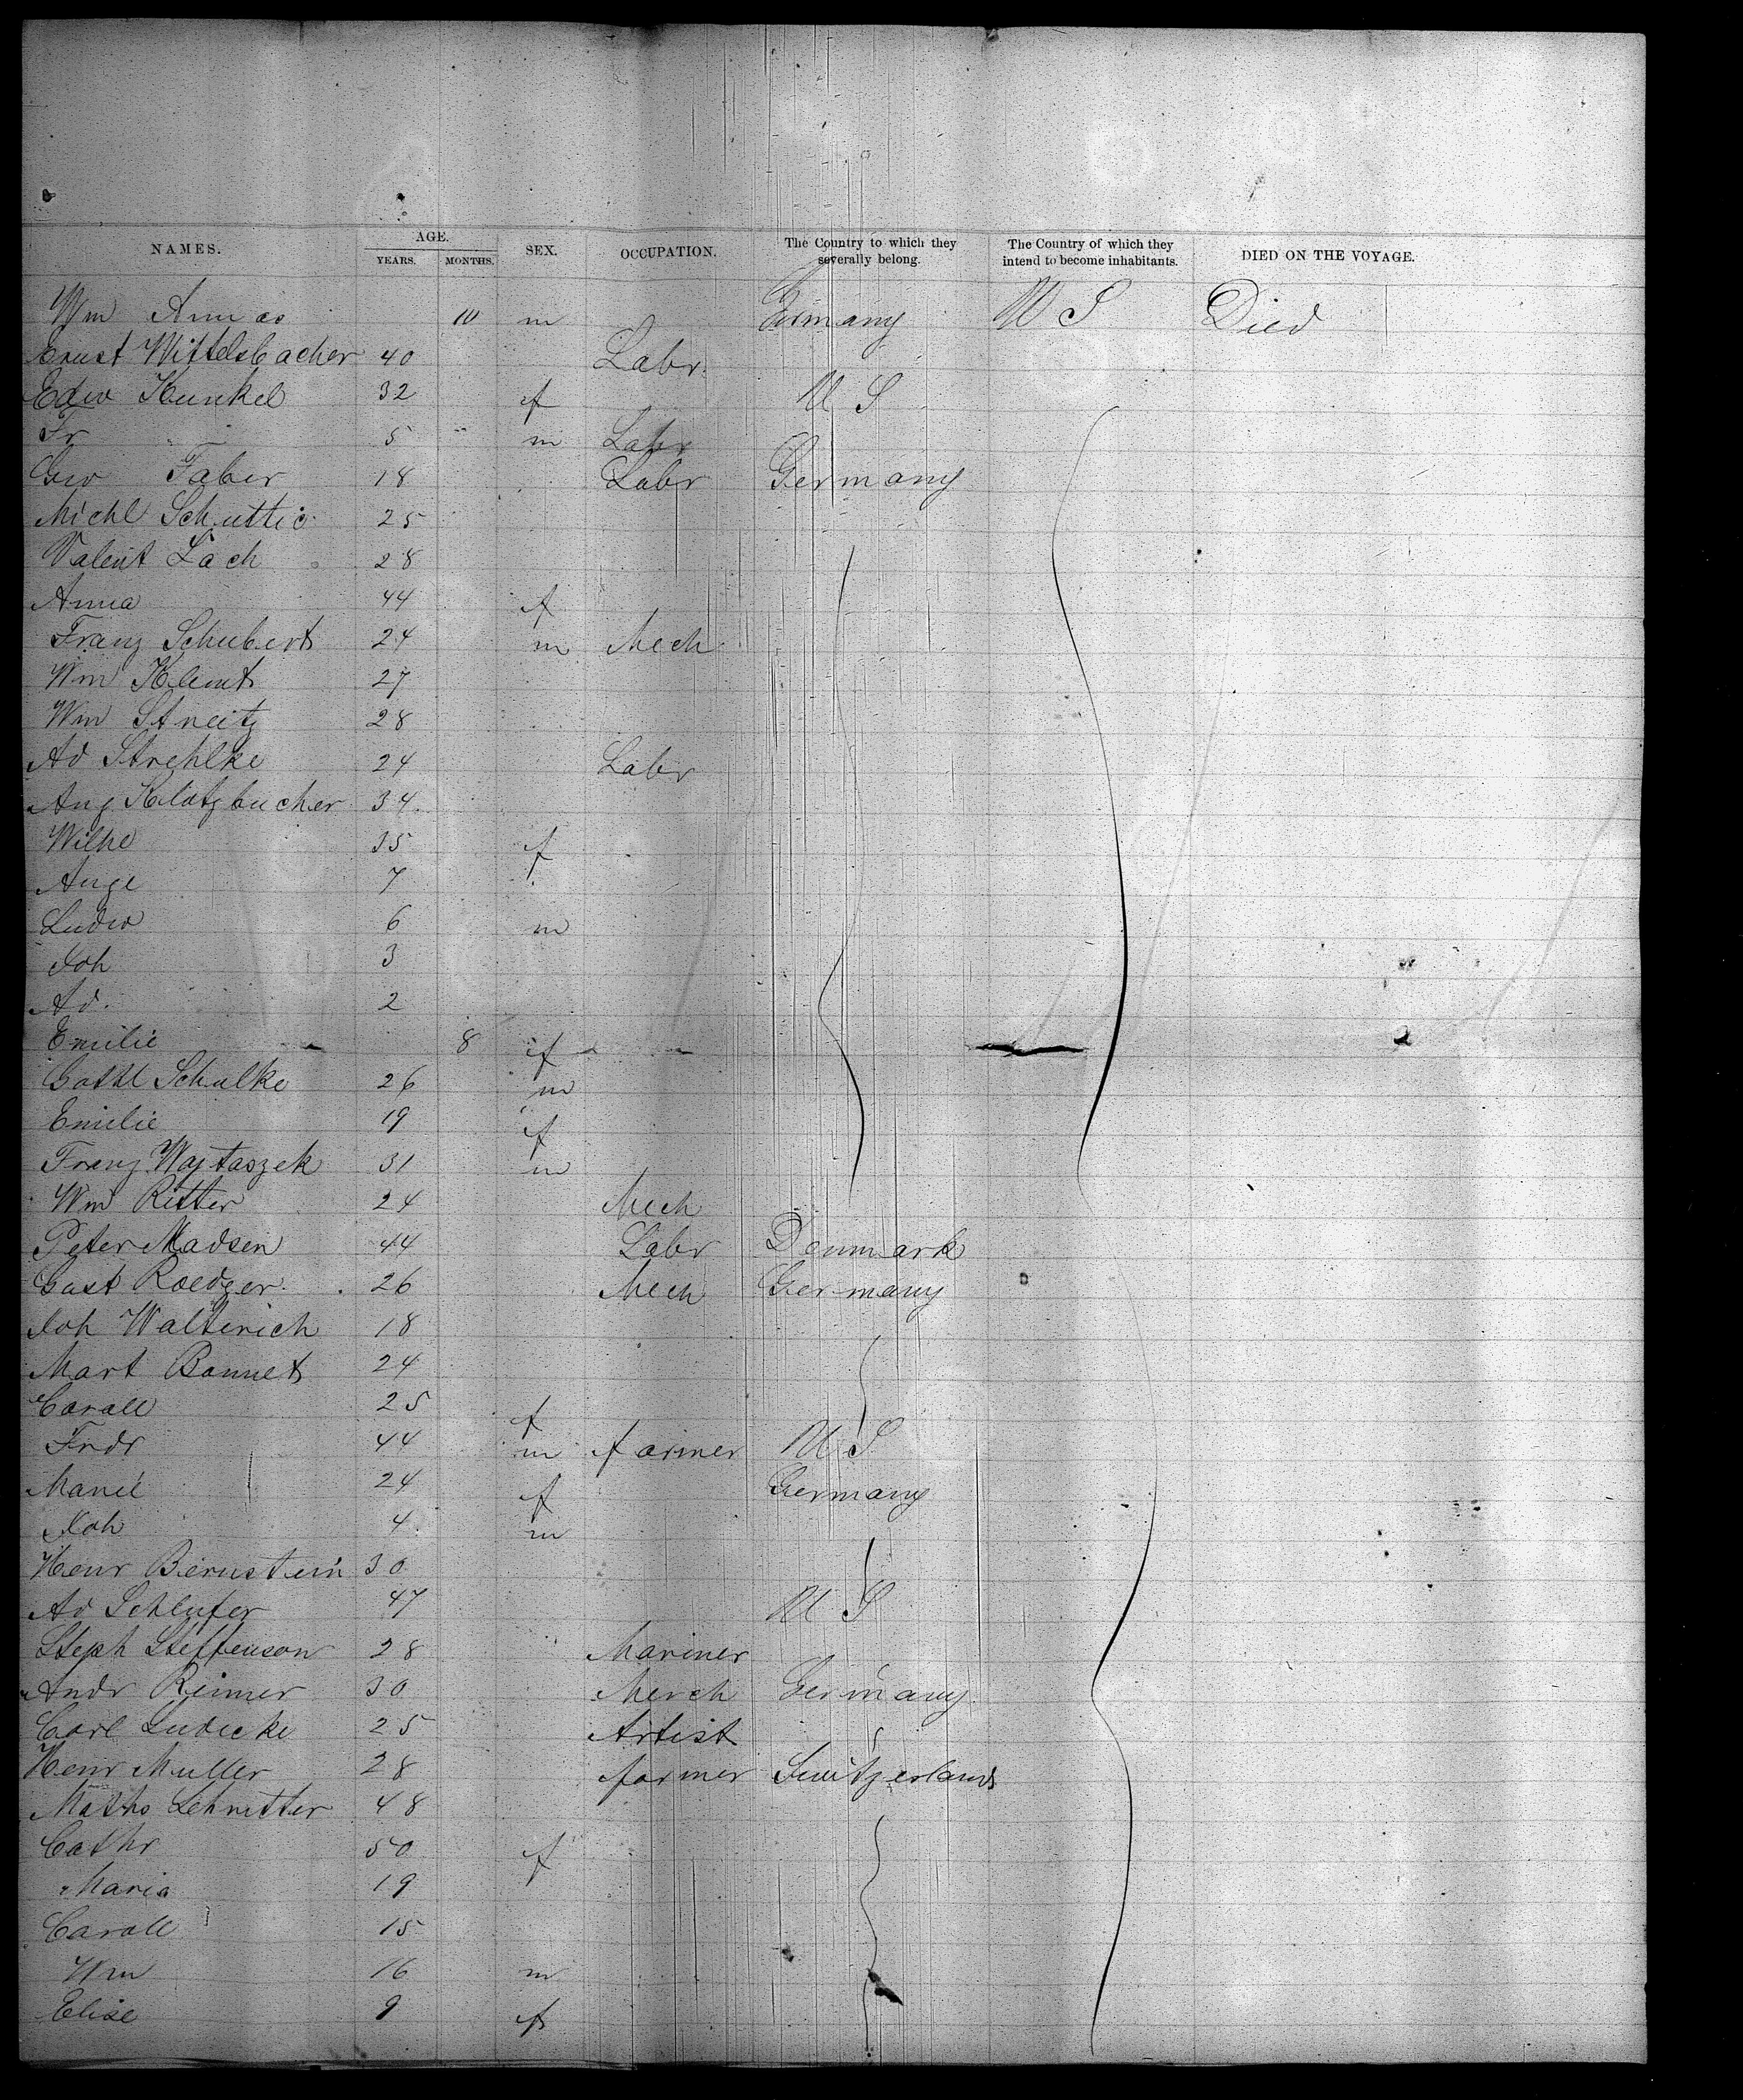 NAMES. AGE. YEARS. MONTHS. SEX. OCCUPATION. The Country to which they severally belong. The Country of which they intend to become inhabitants. DIED ON THE VOYAGE.
Wm 10 m Germany U S Died
Ernst Wittelsbacher 40 Labr.
Edw Kunkel 32 f U S
Fr " 5 " m Labr
Geo Faber 18 Labr Germany
Michl Schuttic 25
Valent Lach 28
Anna 44 f
Franz Schubert 24 m Mech
Wm Klemt 27
Wm Streitz 28
Ad Strehlke 24 Labr
Aug Klotzbucher 34
Wilhe 35 f
Auge 7
Ludw 6 m
Joh 3
Ad. 2
Emilie 8 f
Gottl Schulke 26 m
Emilie 19 f
Franz Wajtaszek 31 m
Wm Ritter 24 Mech
Peter Madsen 44 Labr Denmark
Gust Roedger 26 Mech Germany
Joh Walterich 18
Mart Bonnet 24
Caroll 25 f
Frdr 44 m farmer U S
24 f Germany
Joh 4 m
Henr Bernstein 30
Ad Schlufer 47 U S
Steph Steffenson 28 Mariner
Andr Rimmer 30 Merch Germany
Carl Ludecke 25 Artist
Henr Muller 28 farmer Switzerland
Maths Schnitter 48
Cathr 50 f
Maria 19
Caroll 15
Wm 16 m
Elise 9 f